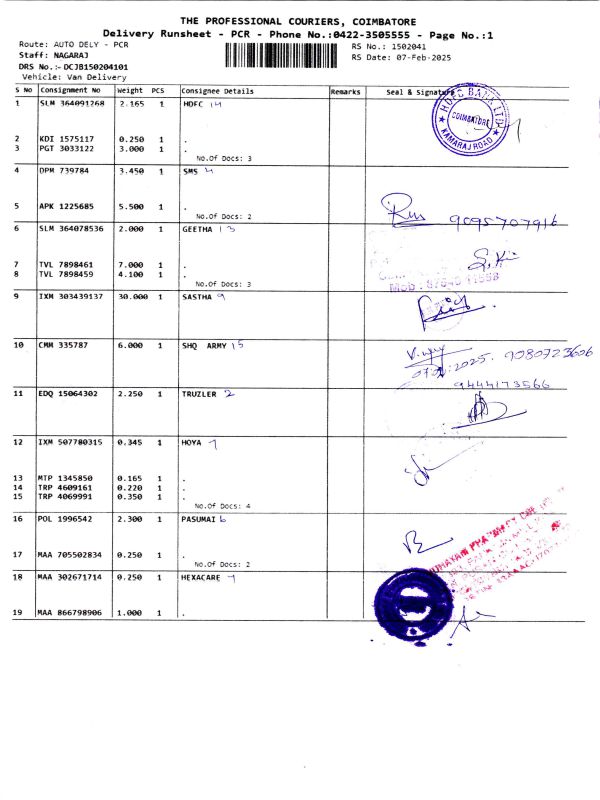 THE PROFESSIONAL COURIERS, COIMBATORE
Delivery Runsheet - PCR - Phone No.:0422-3505555 - Page No.:1
Route: AUTO DELY - PCR
RS No.: 1502041
Staff: NAGARAJ
RS Date: 07-Feb-2025
DRS No.:- DCJB150204101
Vehicle: Van Delivery
S No Consignment No Weight PCS Consignee Details Remarks Seal & Signature
1 SLM 364091268 2.165 1 HDFC 14
HDFC BANK LTD
COIMBATORE
KAMARAJ ROAD
2 KDI 1575117 0.250 1 .
3 PGT 3033122 3.000 1 .
No.Of Docs: 3
4 DPM 739784 3.450 1 SMS 4
5 APK 1225685 5.500 1 .
No.Of Docs: 2
9095707916
6 SLM 364078536 2.000 1 GEETHA 13
7 TVL 7898461 7.000 1 .
8 TVL 7898459 4.100 1 .
No.Of Docs: 3
9 IXM 303439137 30.000 1 SASTHA 9
10 CMM 335787 6.000 1 SHQ ARMY 15
9080723606
9444173566
11 EDQ 15064302 2.250 1 TRUZLER 2
12 IXM 507780315 0.345 1 HOYA 7
13 MTP 1345850 0.165 1 .
14 TRP 4609161 0.220 1 .
15 TRP 4069991 0.350 1 .
No.Of Docs: 4
16 POL 1996542 2.300 1 PASUMAI 6
17 MAA 705502834 0.250 1 .
No.Of Docs: 2
18 MAA 302671714 0.250 1 HEXACARE
19 MAA 866798906 1.000 1 .